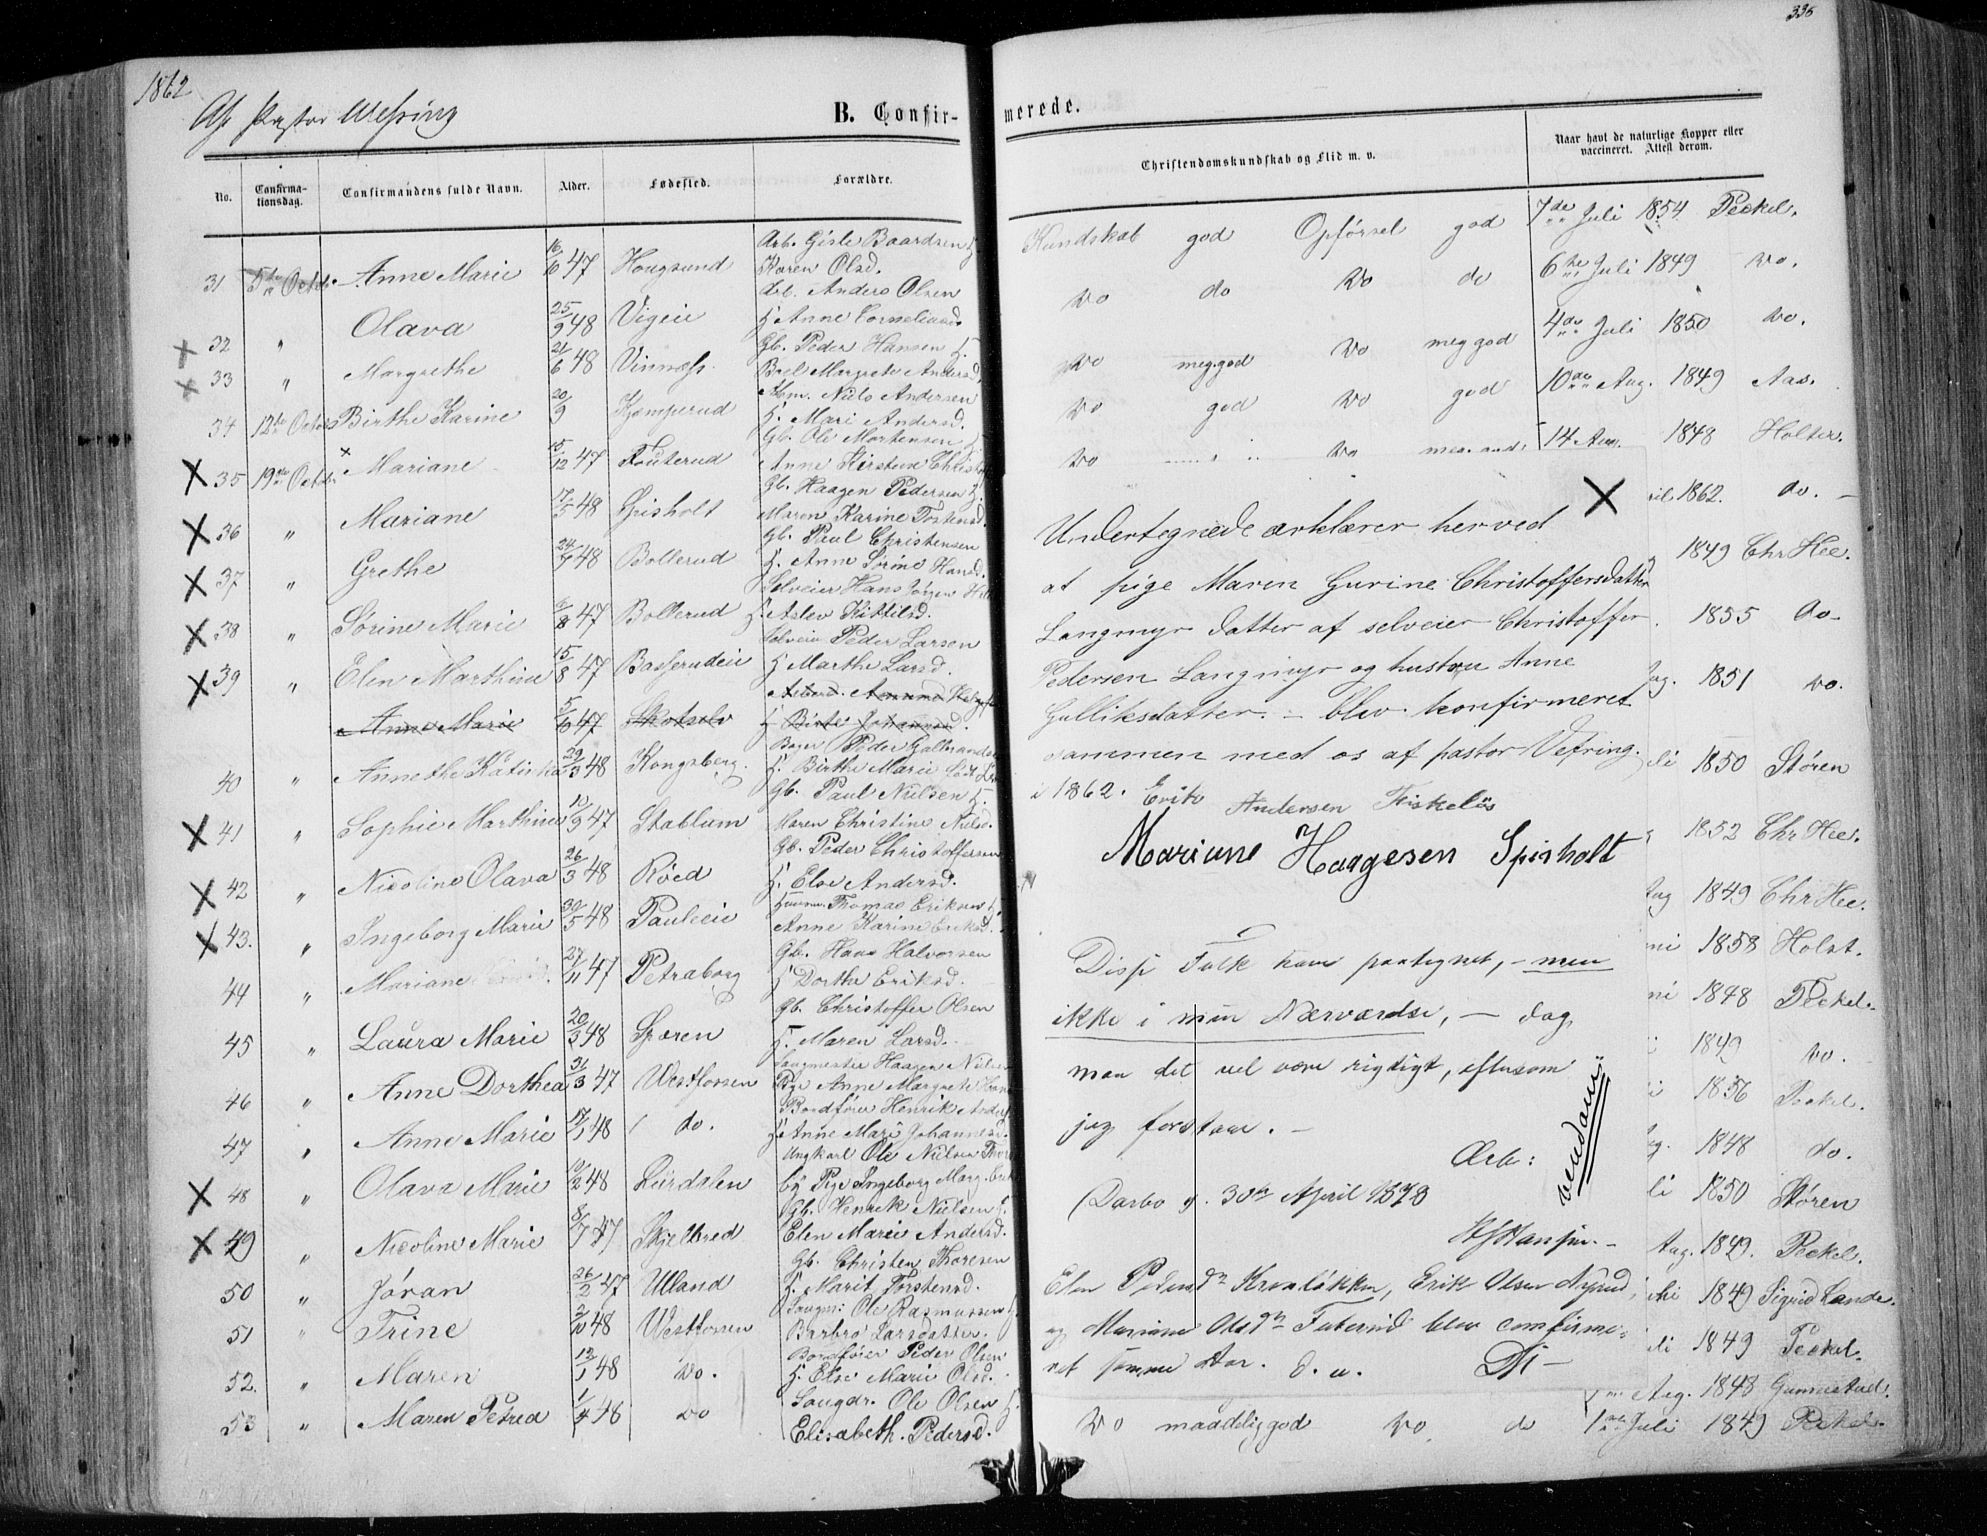 1862
335
Af Pastor Wefring
B. Confirmerede.
No. Confirmationsdag. Confirmandens fulde Navn. Alder. Fødested. Forældre.
Christendomskundskab og Flid m. v. Naar havt de naturlige Kopper eller vaccineret. Attest derom.
31 5te Octbr. Anne Marie 16/10 47 Hougsund Arb. Gisle Baardsen H.
Karen Olsd.
32 " Olava 25/9 48 Vigeie Arb. Anders Olsen
H. Anne Corneliusd
33 " Margrethe 21/6 48 Vinnæss Gb. Peder Hansen H.
Boel Margrete Andersd.
34 12te Octbr Birthe Karine 20/9 Kjemperud Nils Andersen
H. Mari Andersd.
35 19de Octbr Mariane 15/12 47 Fouterud Gb. Ole Mortensen H.
Anne Kirstine
36 " Mariane 17/5 48 Spisholt Gb. Haagen Pedersen H.
Maren Karine Torstensd.
37 " Grethe 24/9 48 Bollerud Gb. Paul Christensen
H. Anne Sørine Hansd.
38 " Sørine Marie 8 47 Bollerud Selveier Hans Jørgen
H. Aslev Kittilsd.
39 " Elen Marthine 15/8 47 Basserudeie Selveier Peder Larsen
H. Marthe Larsd.
Anne Marie 5/10 47 Skotselv
H. Birte Johannesd.
40 " Annethe Katinka 29/3 48 Kongsberg. Bager Peder
H. Birthe Marie
41 " Sophie Marthine 10/9 47 Stablum Gb. Paul Nielsen H.
Maren Christine Nielsd.
42 " Nicoline Olava 26/3 48 Røed Gb. Peder Christoffersen
H. Else Andersd.
43. " Ingeborg Marie 30/5 48 Pauleeie Thomas Eriksen H.
Anne Karine Eriksd.
44 " Mariane 27/11 47 Petraborg Gb. Hans Halvorsen
H. Dorthe Eriksd.
45 " Laura Marie 20/3 48 Sporen Gb. Christoffer Olsen
H. Maren Larsd.
46 " Anne Dorthea 31/3 47 Westfossen Saugmester Haagen Nielsen
Pige Anne Margrete
47 " Anne Marie 17/1 48 do. Bordfører Henrik
H. Anne Mari Johannesd.
48 " Olava Marie 10/2 48 Lurdalen Ungkarl Ole Nielsen
og Pige Ingeborg Marg.
49 " Nicoline Marie 8/7 47 Skjelbred Gb. Henrik Nielsen H.
Elen Marie Andersd.
50 " Jøran 26/2 47 Ulland Gb. Christen Thoresen
H. Marit Torstensd.
51 " Trine 2/10 48 Vestfossen Saugm: Ole Rasmussen H
Barbro Larsdatter.
52. " Maren 12/1 48 do. Bordfører Peder Olsen
H. Else Marie Olsd.
53 " Maren Petrea 1/4 48 do Saugdr. Ole Olsen H.
Elisabeth Pedersd.
Kundskab god Opførsel god 7de Juli 1854 Peckel.
do do do do 6te Juli 1849 do.
do meg.god do meg god 4de Juli 1850 do.
do god do god 10de Aug. 1849 Aas.
do do 14 Aug. 1848 Holter.
ril 1862. do.
1849 Chr Hee.
1855 do
ug. 1851 do.
uli 1850 Støren
1852 Chr Hee.
Aug 1849 Chr Hee.
uni 1858 Holst.
uni 1848 Peckel.
1849 do.
li 1856 Peckel.
ug. 1848 do.
li 1850 Støren
Aug. 1849. Peckel.
uli 1849 Sigrid Lande.
uli 1849 Peckel.
Aug. 1848 Gunnestad.
do maadelig god do do 1ste Juli 1849 Peckel.
Undertegnede ærklærer herved
at pige Maren Gurine Christoffersdatter
Langmyr datter af selveier Christoffer
Pedersen Langmyr og hustru Anne
Gulliksdatter. – blev konfirmeret
sammen med os af pastor Vefring.
i 1862. Erik Andersen Fiskeløs
Mariane Haagesen Spisholt
Disse Folk have paategnet, – men
ikke i min Nærværelse, – dog
maa det vel være rigtigt, eftersom
jeg forstaar. –
Ærb:
Darbo g. 30te April 1878
vendanu
Elen Pedersdr Kronløkken, Erik Olsen Nyrud,
og Mariane Olsdr Futerud blev confirme-
ret samme Aar. d. u.